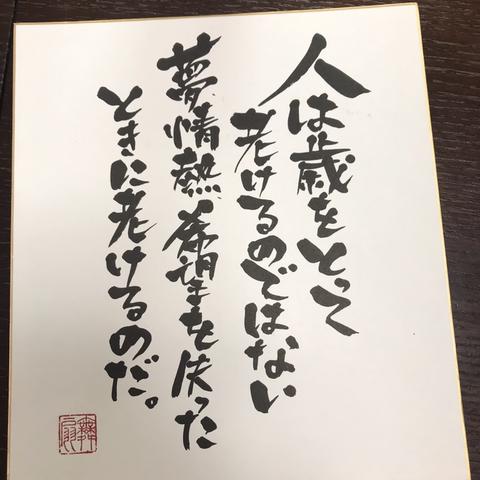 人は歳をとって
老けるのではない
夢情熱希望を失った
ときに老けるのだ。